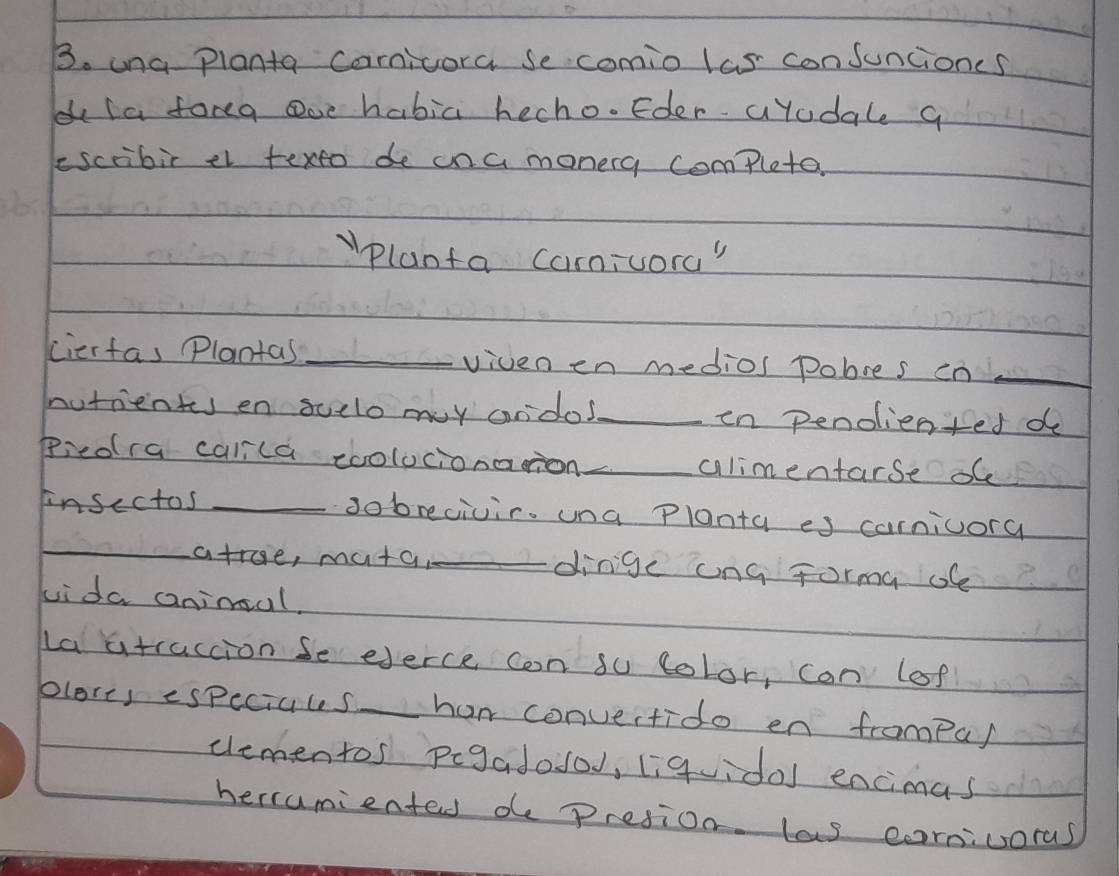 3. una Planta carnivora se comio las conjunciones
de la tarea que habia hecho. Eder. ayudale a
escribir el texto de una manera completa.
"Planta carnivora"
Ciertas Plantas ______ viven en medios Pobres en ____
nutrientes en suelo muy aridos ____ en Pendientes de
Piedra caliza evolucionaron ____ alimentarse de
insectos ____ sobrecivir. una Planta es carnivora
______ atrae, mata, ____ dirige una forma de
vida animal.
La atraccion se ejerce con su color, con los
olores especiales ___ han convertido en trampas
______ elementos Pegadosos, liquidos encimas
______ herramientas de Presion. las carnivoras